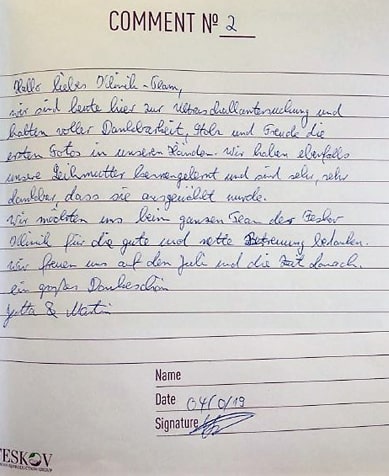 COMMENT Nº 2
Hallo liebes Klinik-Team,
wir sind heute hier zur Ultraschalluntersuchung und
halten voller Dankbarkeit, Stolz und Freude die
ersten Fotos in unseren Händen. Wir haben ebenfalls
unsere Leihmutter kennengelernt und sind sehr, sehr
dankbar, dass sie ausgewählt wurde.
Wir möchten uns beim ganzen Team der Feskov
Klinik für die gute und nette Betreuung bedanken.
Wir freuen uns auf den Juli und die Zeit danach.
ein großes Dankeschön
Jutta & Martin
Name
Date 04/0/19
Signature
FESKOV
REPRODUCTION GROUP